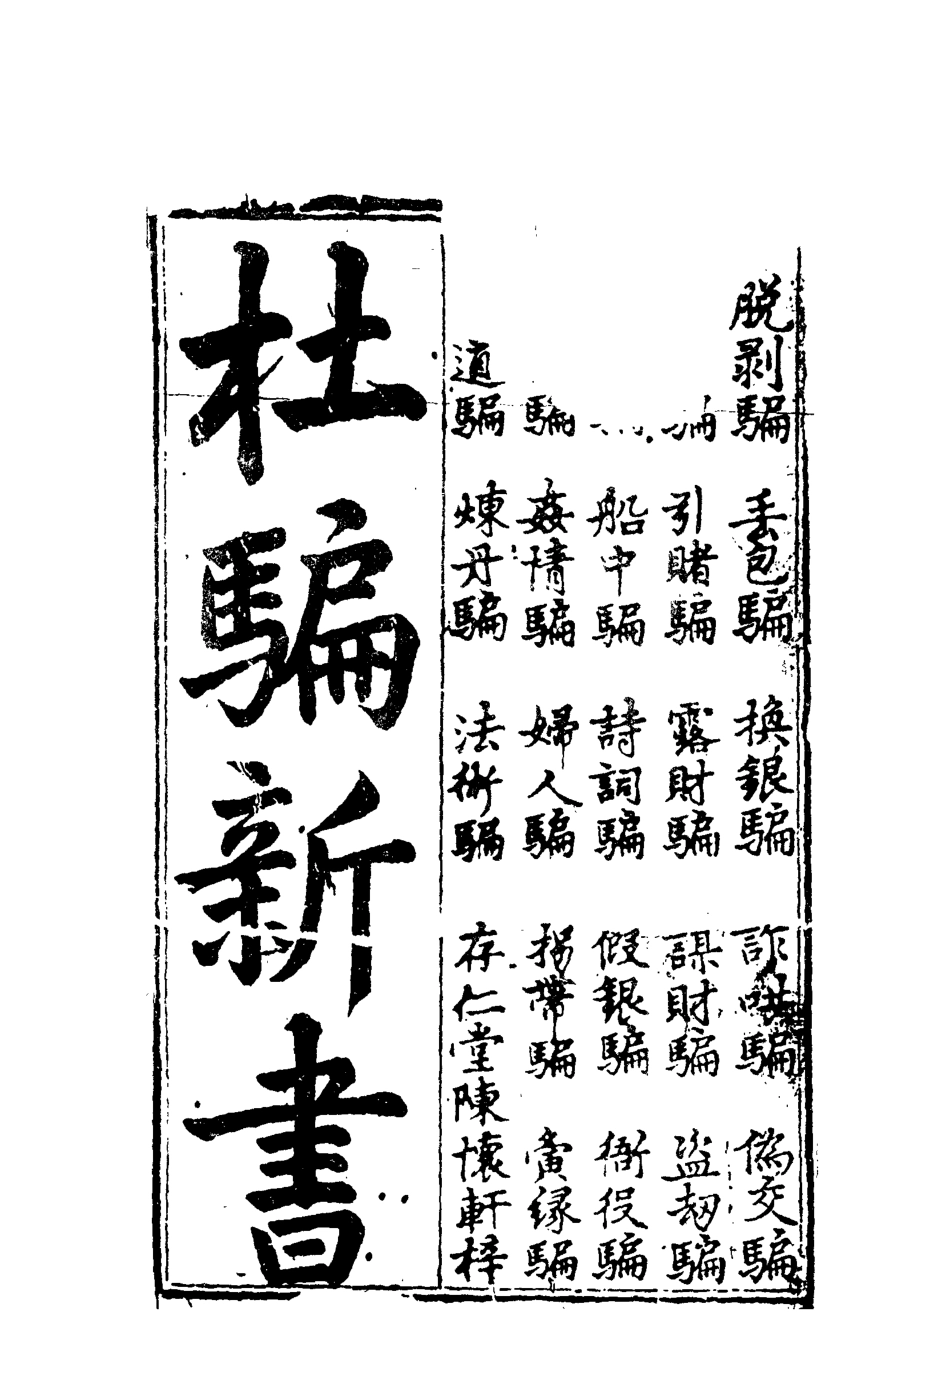 脱剥騙 丢包騙 換銀騙 詐哄騙 偽交騙
騙 引賭騙 露財騙 謀財騙 盜劫騙
船中騙 詩詞騙 假銀騙 衙役騙
騙 姦情騙 婦人騙 拐帶騙 夤緣騙
道騙 煉丹騙 法術騙 存仁堂陳懷軒梓
杜騙新書